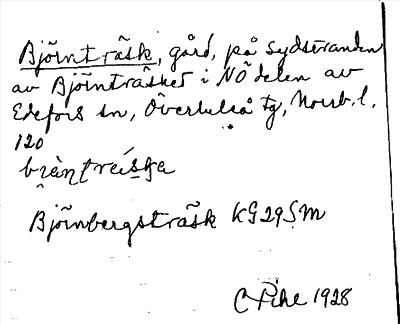 Björnträsk, gård, på sydstranden
av Björnträsket i NÖ delen av
Edefors sn, Överluleå tg, Norrb. l.
120
Björnbergsträsk KG29SM
C Pihl 1928